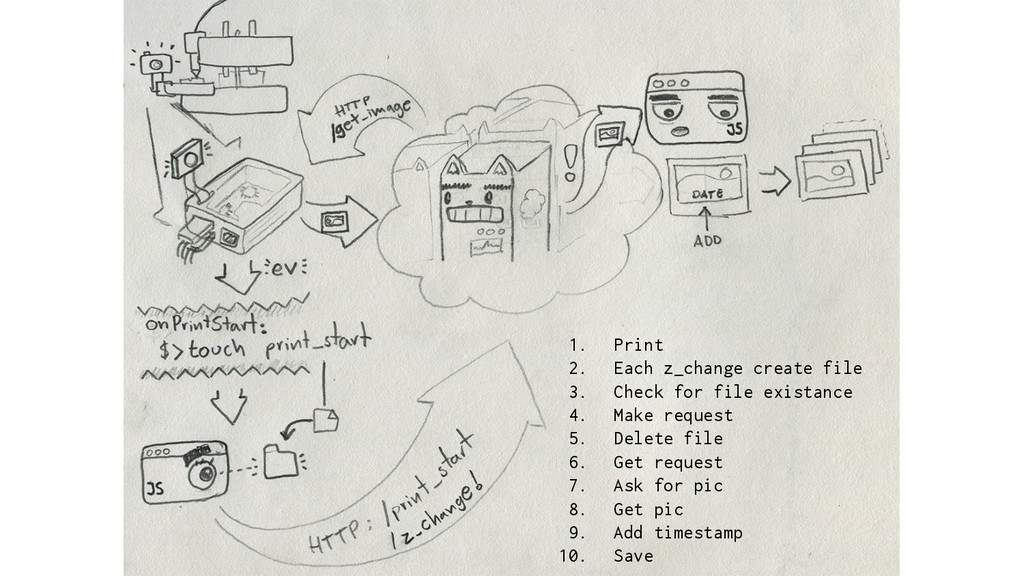 HTTP
/get_image
JS
DATE
ADD
ev
onPrintStart:
$>touch print_start
JS
HTTP: /print_start
/z_change!
1. Print
2. Each z_change create file
3. Check for file existance
4. Make request
5. Delete file
6. Get request
7. Ask for pic
8. Get pic
9. Add timestamp
10. Save